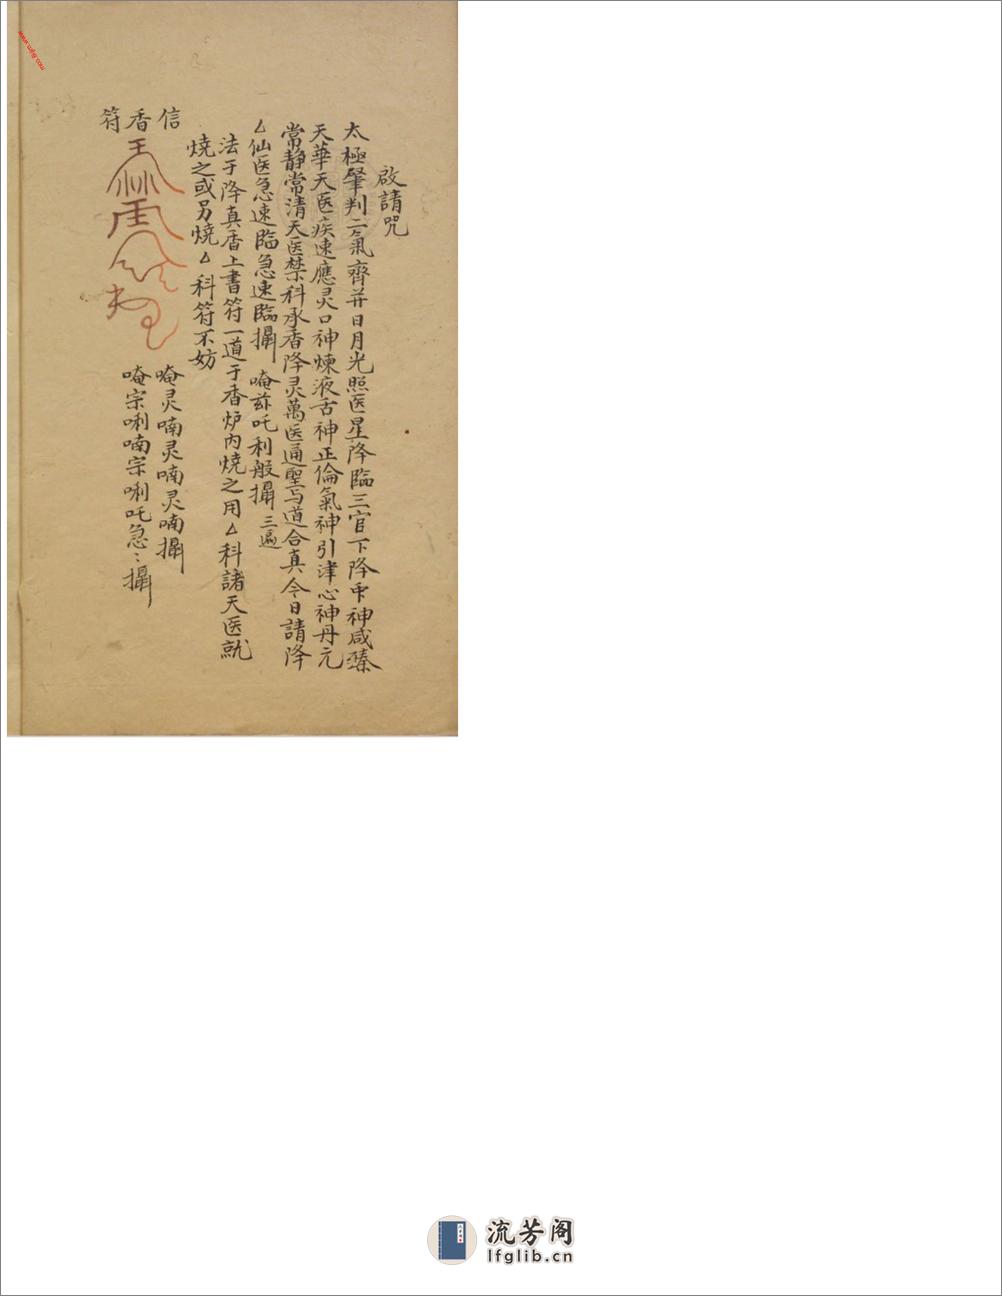 啟請咒
太極肇判二氣齊并日月光照医星降臨三官下降帀神咸臻
天華天医疾速應灵口神煉液舌神正倫氣神引津心神丹元
常静常清天医禁科承香降灵萬医通聖与道合真今日請降
厶仙医急速臨急速臨攝 唵茲吒利般攝 三遍
法于降真香上書符一道于香炉内燒之用厶科諸天医就
燒之或另燒厶科符不妨
信香符
唵灵喃灵喃灵喃攝
唵宗唎喃宗唎吒急〻攝
www.lfglib.com
流芳阁
lfglib.cn